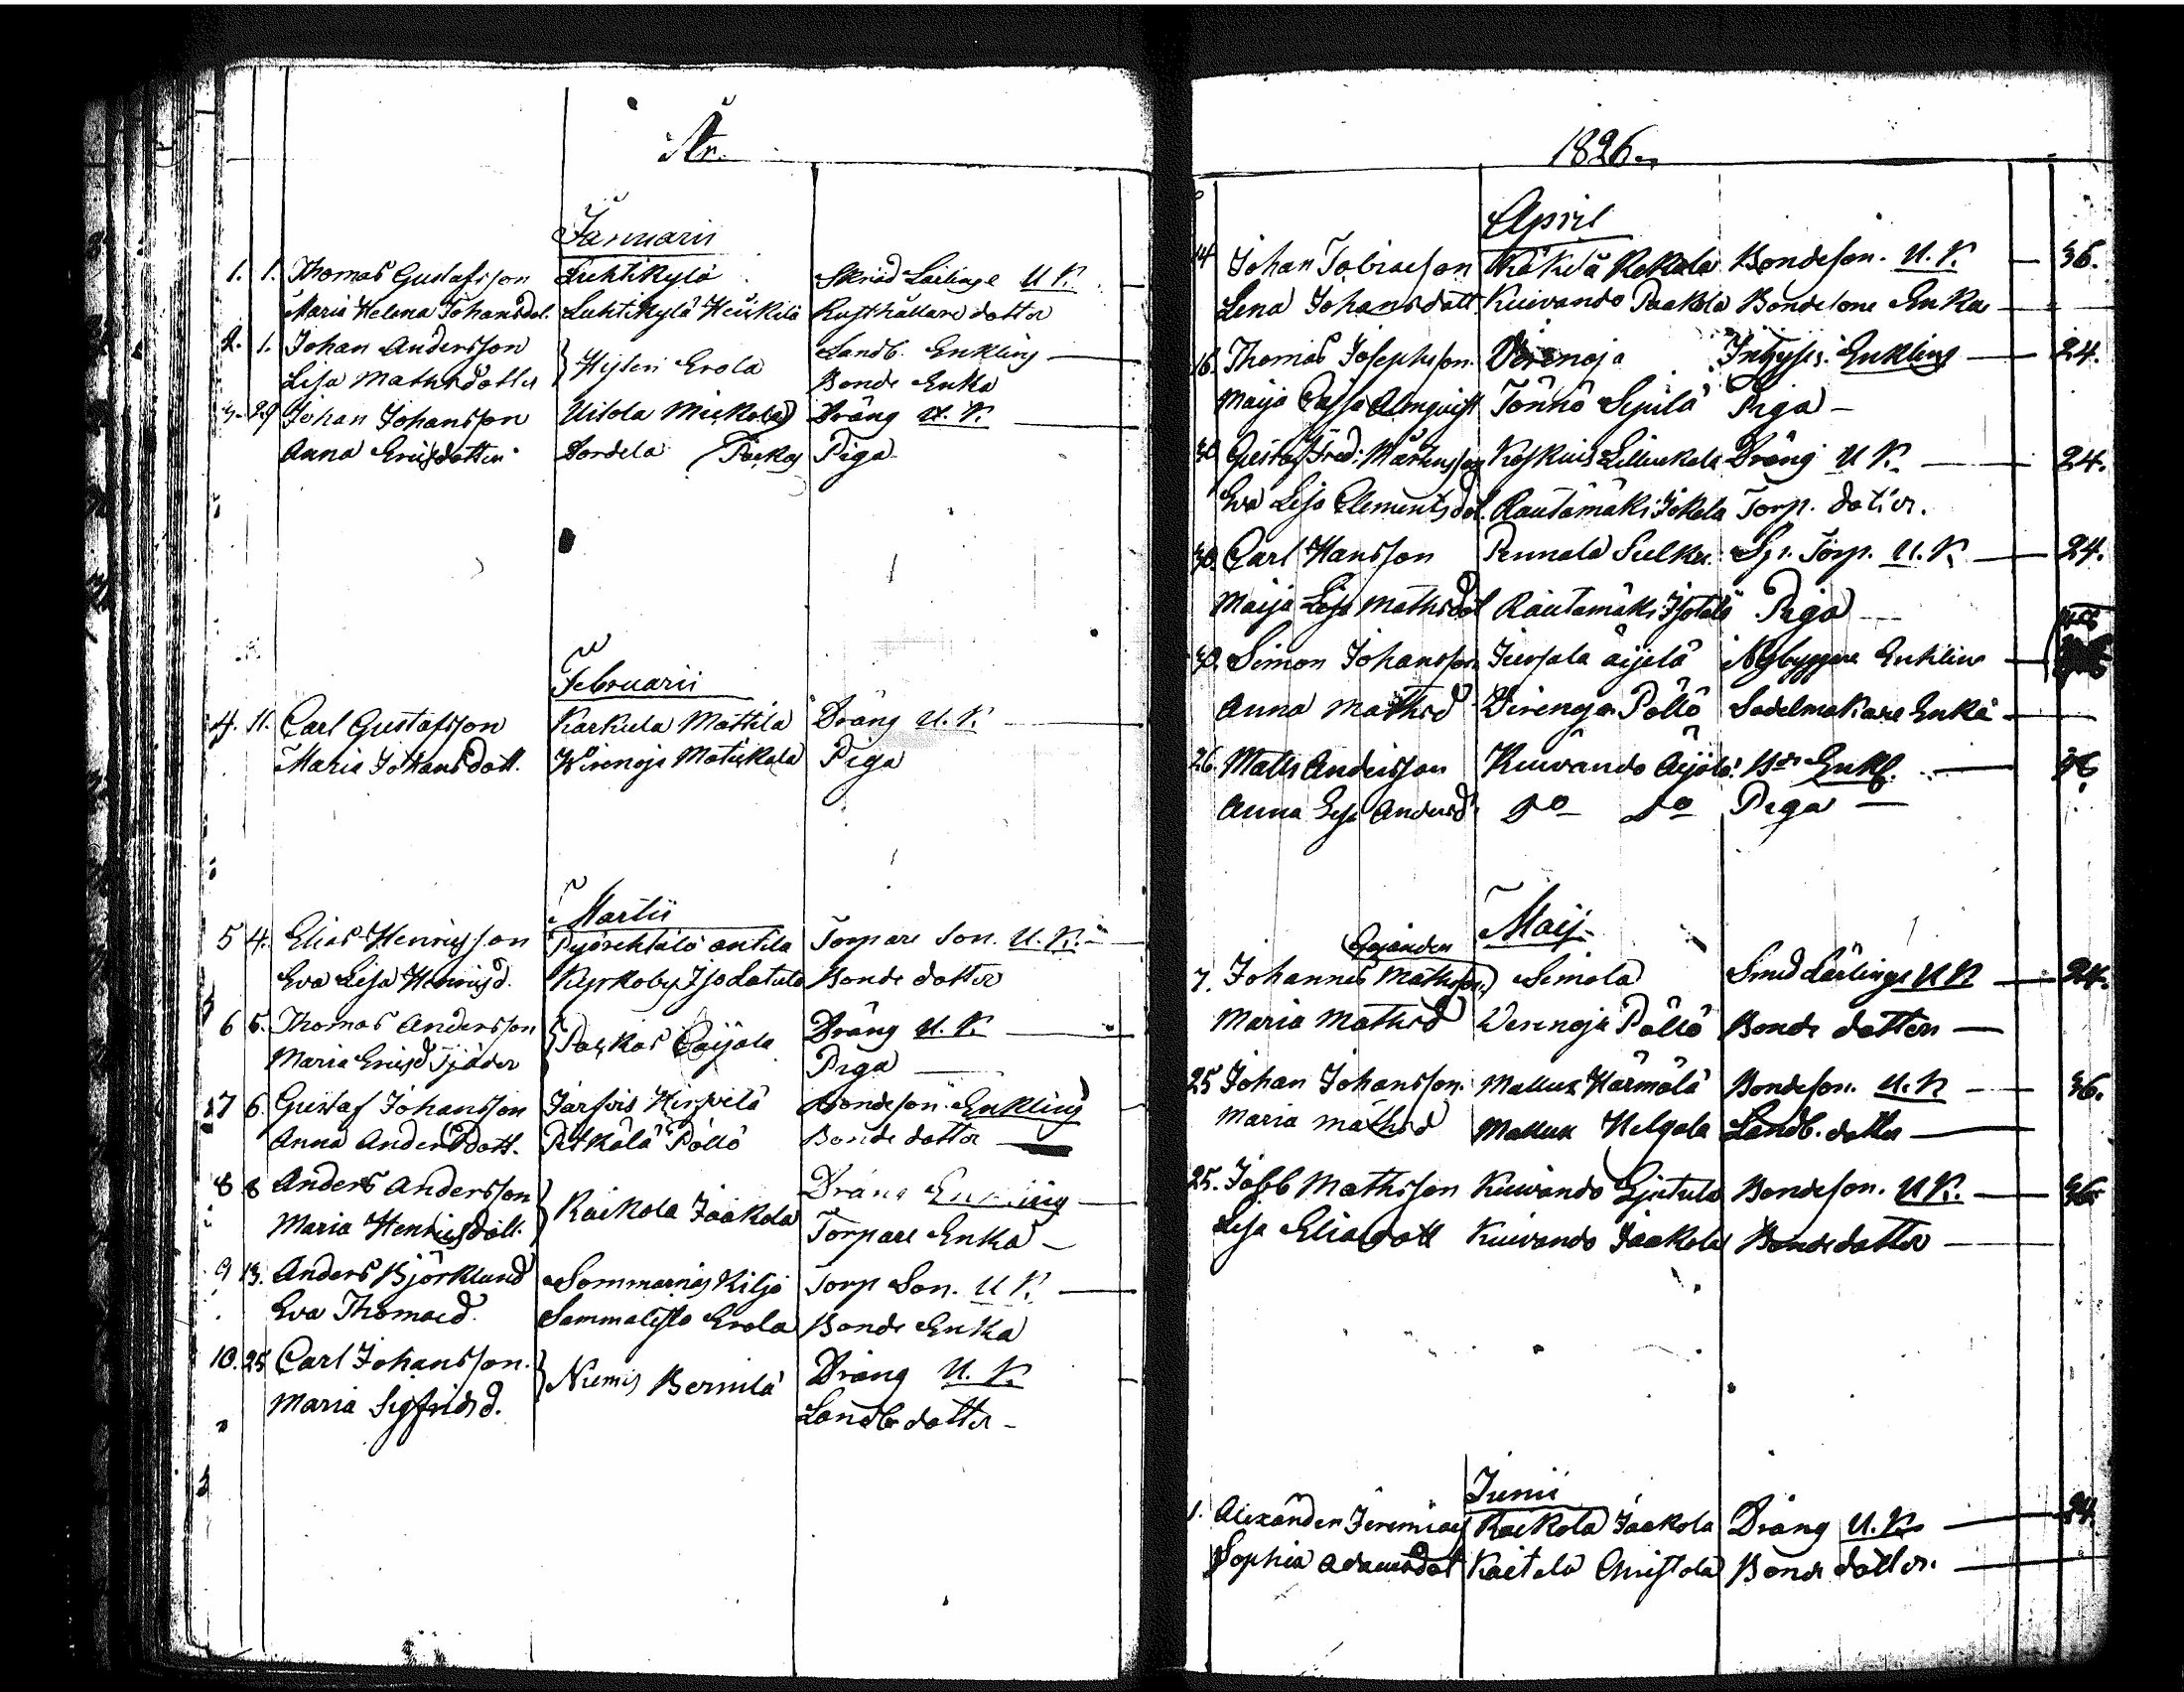 År
Januarii
1. 1. Thomas Gustafsson Luhtikylä Skräd Lärlinge U. K.
Maria Helena Johansdot. Luhtikylä Heickilä Rusthållare dotter
2. 1. Johan Andersson } Erola Landb. Enkling
Lisa Mathsdotter Bonde Enka
3. 29 Johan Johansson Uitola Mickola Dräng U. K.
Anna Ericsdotter Piga
Februarii
4. 11. Carl Gustafsson Karkula Mattila Dräng U. K.
Maria Johansdott. Wirenoja Piga
Martii
5 4. Elias Henricsson antila Torpare Son. U. K.
Eva Lisa Henricsd. Kyrkoby Bonde dotter
6 5. Thomas Andersson } Dräng U. K.
Maria Ericsd Tjäder Piga
7 6. Gustaf Johansson Järfvis Hirfvelä Bondeson. Enkling
Anna Andersdott. Pitkälä Pöllö Bonde dotter
8 8 Anders Andersson } Raikola Jaakola Dräng Enkling
Maria Henricsdott. Torpare Enka
9 13. Anders Björklund Sommarnäs Kiljo Torp Son. U. K.
Eva Thomasd. Sammalisto Erola Bonde Enka
10. 25 Carl Johansson. } Niemis Dräng U. K.
Maria Sigfridsd. Landb dotter
1826.
April
14 Johan Tobiasson Käkelä Bondeson. U. K. 36.
Lena Johansdott Kuivando Paakola Bondesons Enka
16. Thomas Josephsson. Virenoja Inhyses. Enkling 24.
Maija Cajsa Almqvist Tönnö Sipilä Piga
30 Gustaf Fred: Mårtensson Koskuis Dräng U K. 24.
Eva Lisa Clementsdot. Rautamäki Jokela Torp. dotter.
30. Carl Hansson Sp. Torp. U. K. 24.
Maija Lisa Mathsdot Rautamäki Isotalo Piga
30. Simon Johansson äijelä Nybyggare Enkling
Anna Mathsd Virenoja Pöllö Sadelmakare Enka
26. Matts Andersson Kuivando Äijälä Enkl. 36
Anna Lisa Andersd Do Do Piga
Maij
7. Johannes Mathsson Simola Smed Lärlinge U K 24.
Maria Mathsd Verenoja Pöllö Bonde dotter
25 Johan Johansson. Mallus Härmälä Bondeson. U. K 36.
Maria Mathsd Mallus Helgala Landb. dotter
25. Jobb Mathsson Kuivando Bondeson. U K. 36
Lisa Eliædott Kuivando Jaakola Bonde dotter
Junii
1. Alexander Jeremiæs Raekola Jaakola Dräng U. K. 24.
Sophia Adamsdot Kaitala Christola Bonde dotter.